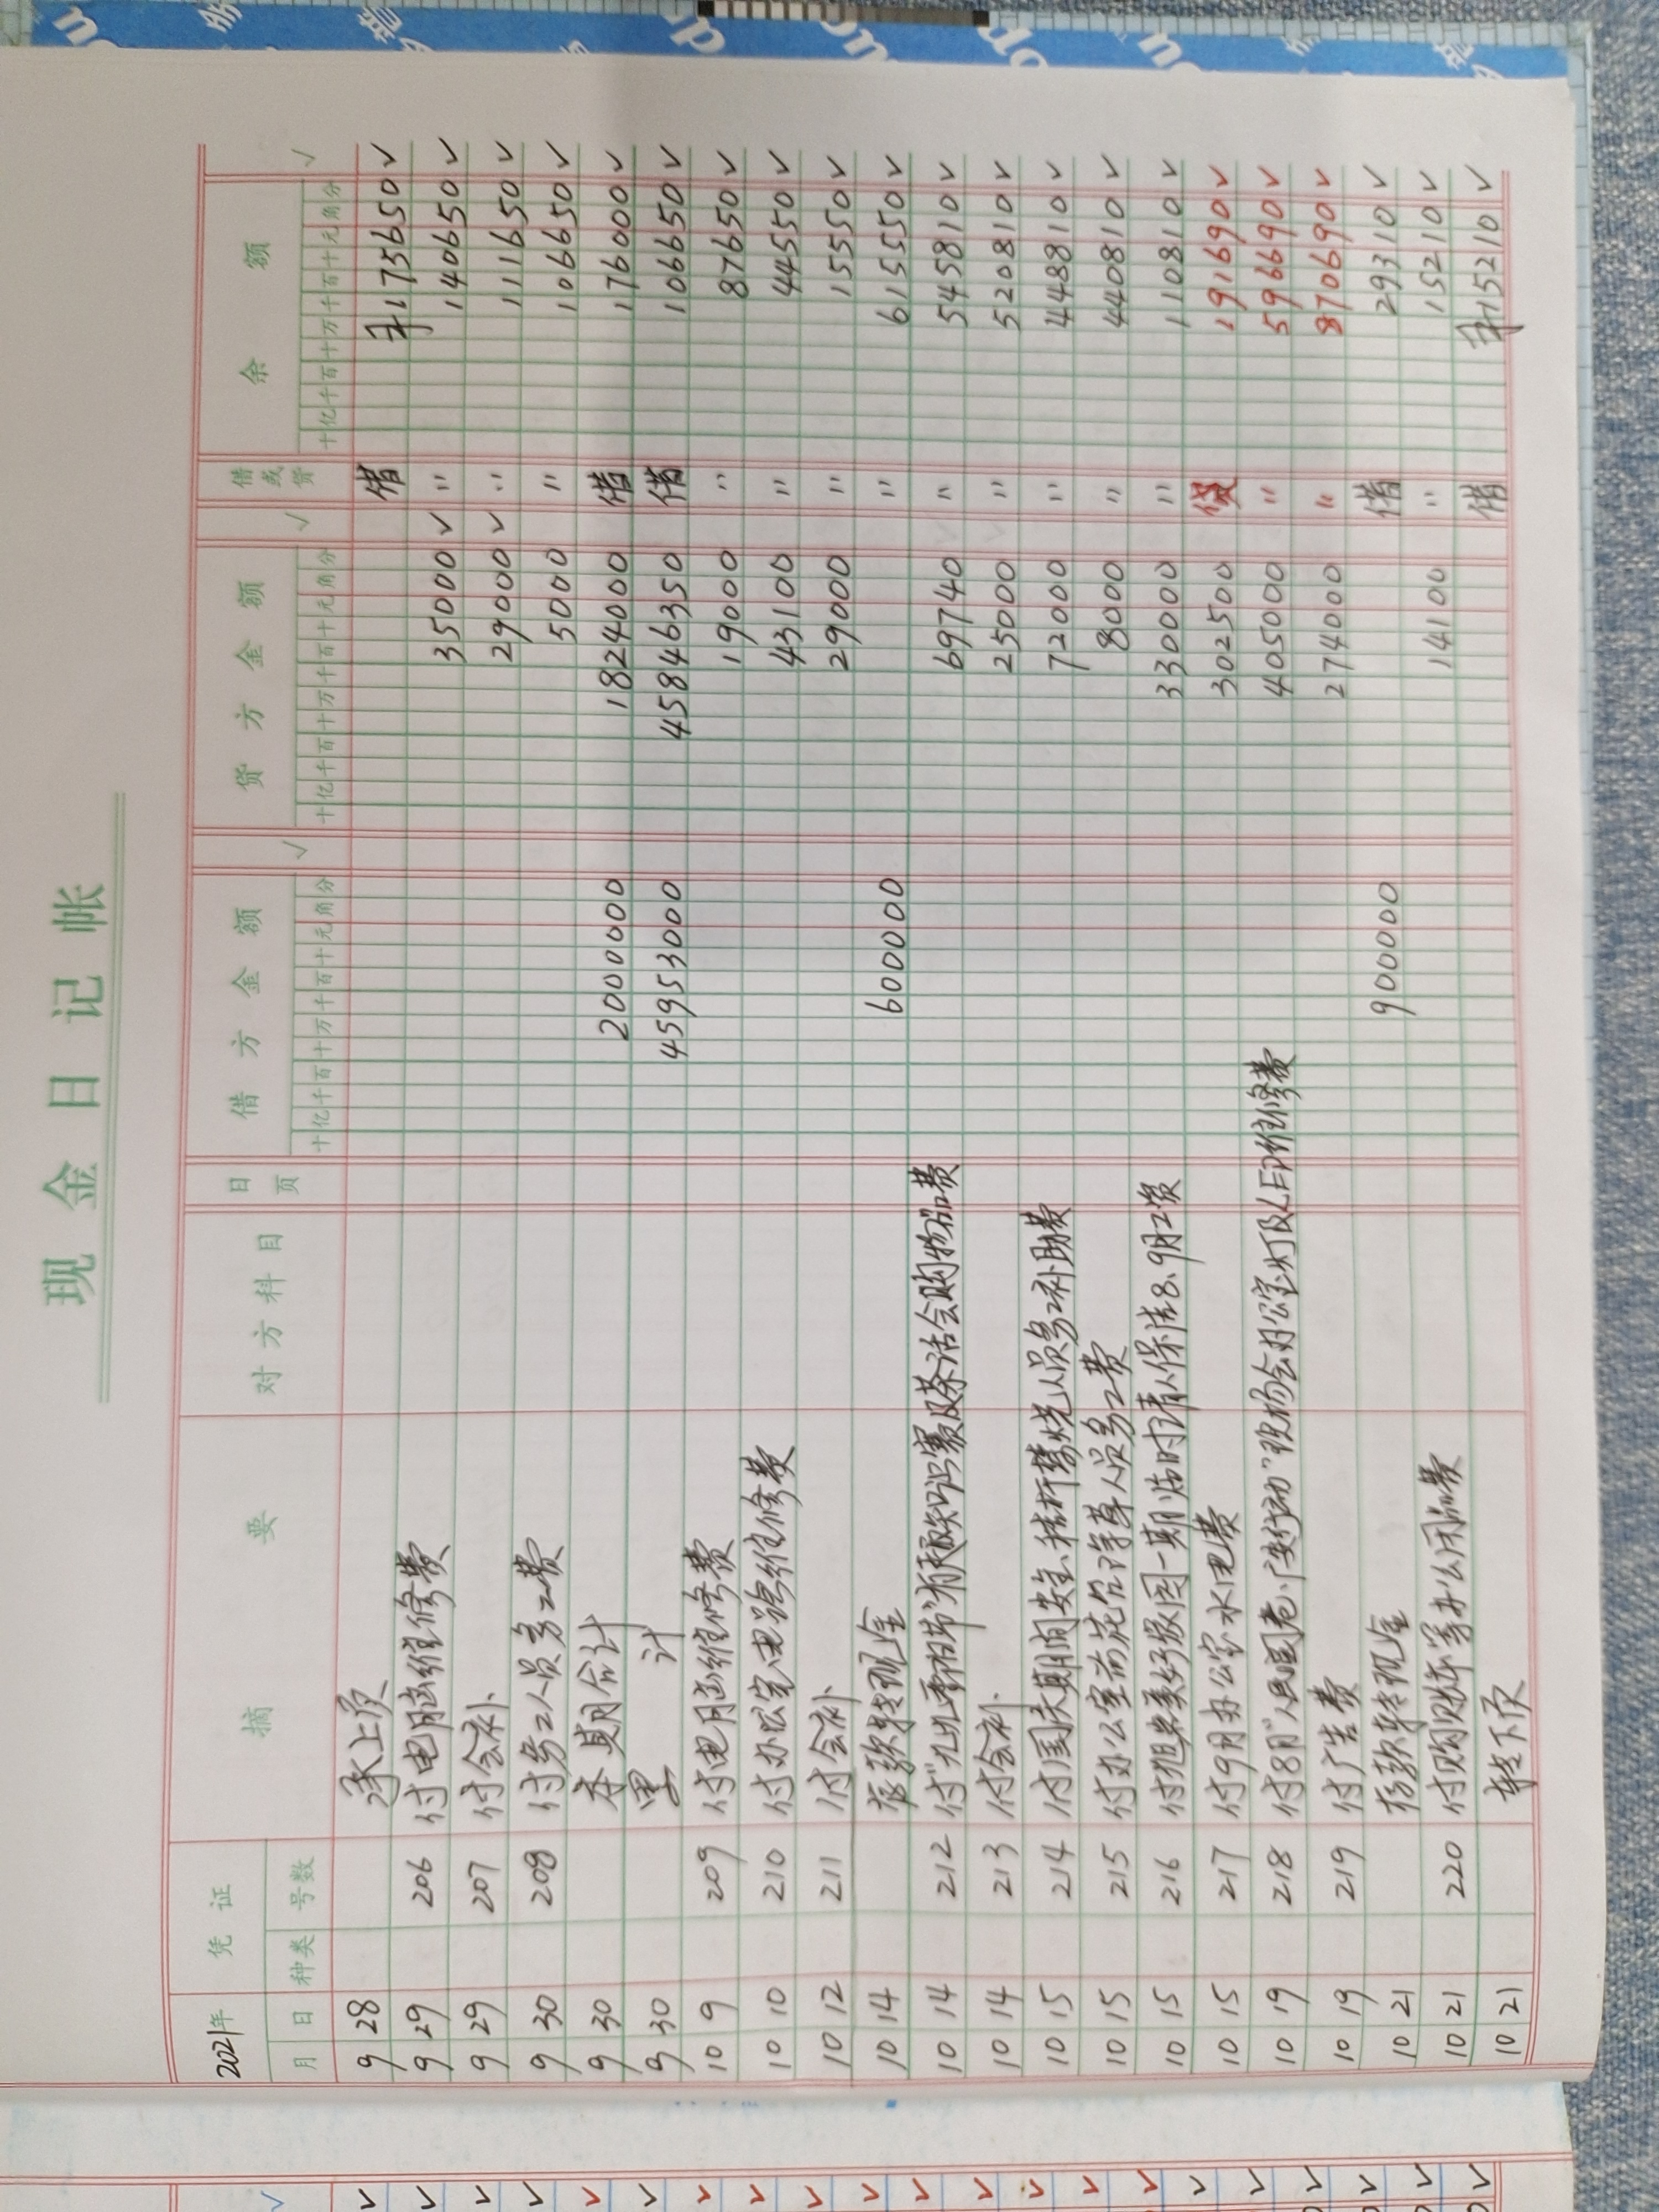 现金日记帐
2021年 凭证 摘要 对方科目 日页 借方金额 √ 贷方金额 √ 借或贷 余额 √
月 日 种类 号数 十亿千百十万千百十元角分 十亿千百十万千百十元角分 十亿千百十万千百十元角分
9 28 承上页 借 175650 √
9 29 206 付电脑维修费 35000 √ 〃 140650 √
9 29 207 付会补 29000 √ 〃 111650 √
9 30 208 付务工人员务工费 5000 〃 106650 √
9 30 本期合计 2000000 1824000 借 176000 √
9 30 累计 45953000 45846350 借 106650 √
10 9 209 付电脑维修费 19000 〃 87650 √
10 10 210 付办公室电路维修费 43100 〃 44550 √
10 12 211 付会补 29000 〃 15550 √
10 14 存款转现金 600000 〃 615550 √
10 14 212 付"九九重阳节"象棋赛及茶话会购物品费 69740 〃 545810 √
10 14 213 付会补 25000 〃 520810 √
10 15 214 付国庆期间安全、秸秆禁烧人员务工补助费 72000 〃 448810 √
10 15 215 付办公室前花台除草人员务工费 8000 〃 440810 √
10 15 216 付旭阜美好家园一期临时请人保洁8.9月工资 330000 〃 110810 √
10 15 217 付9月办公室水电费 302500 贷 191690 √
10 19 218 付8月"人居环境"现场会办公室水灯及LED维修费 405000 〃 596690 √
10 19 219 付广告费 274000 〃 870690 √
10 21 存款转现金 900000 借 29310 √
10 21 220 付购账本等办公用品费 14100 〃 15210 √
10 21 转下页 借 15210 √